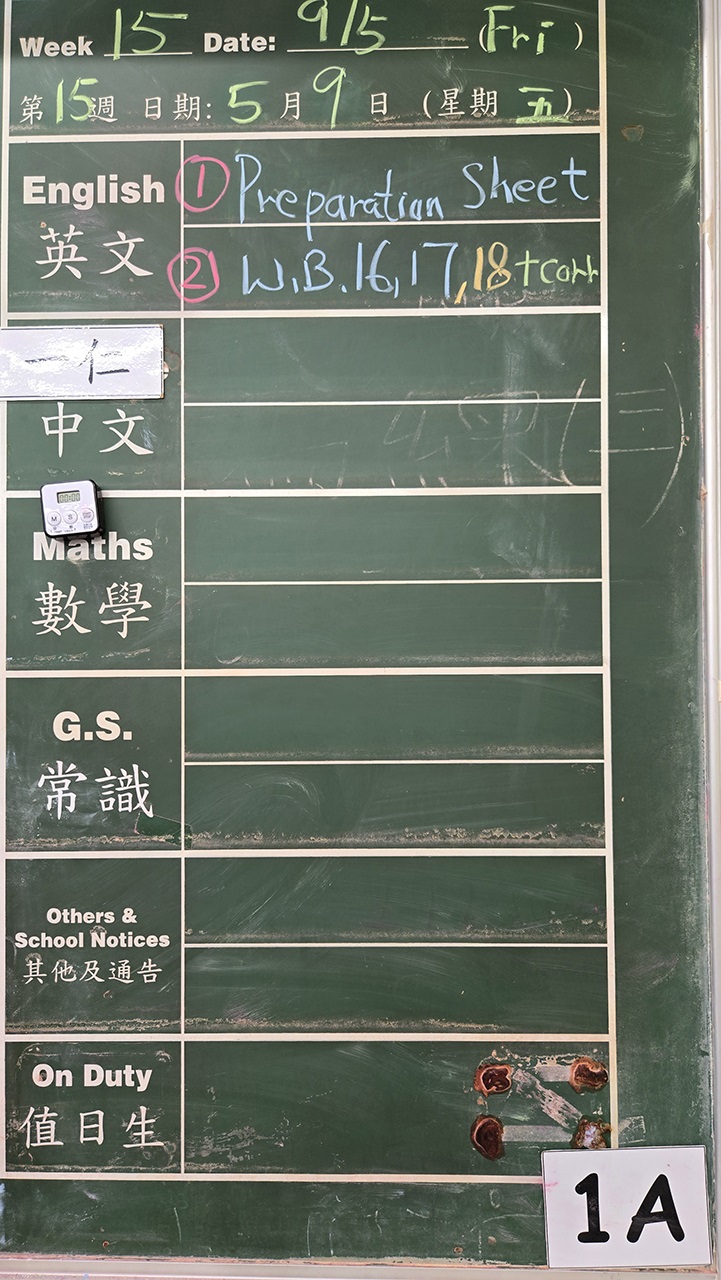 Week 15 Date: 9/5 (Fri)
第15週 日期: 5月9日 (星期五)
English ① Preparation Sheet
英文 ② W.B.16,17,18+corr
一仁
中文
00:00
M S
Maths
數學
G.S.
常識
Others &
School Notices
其他及通告
On Duty
值日生
1A